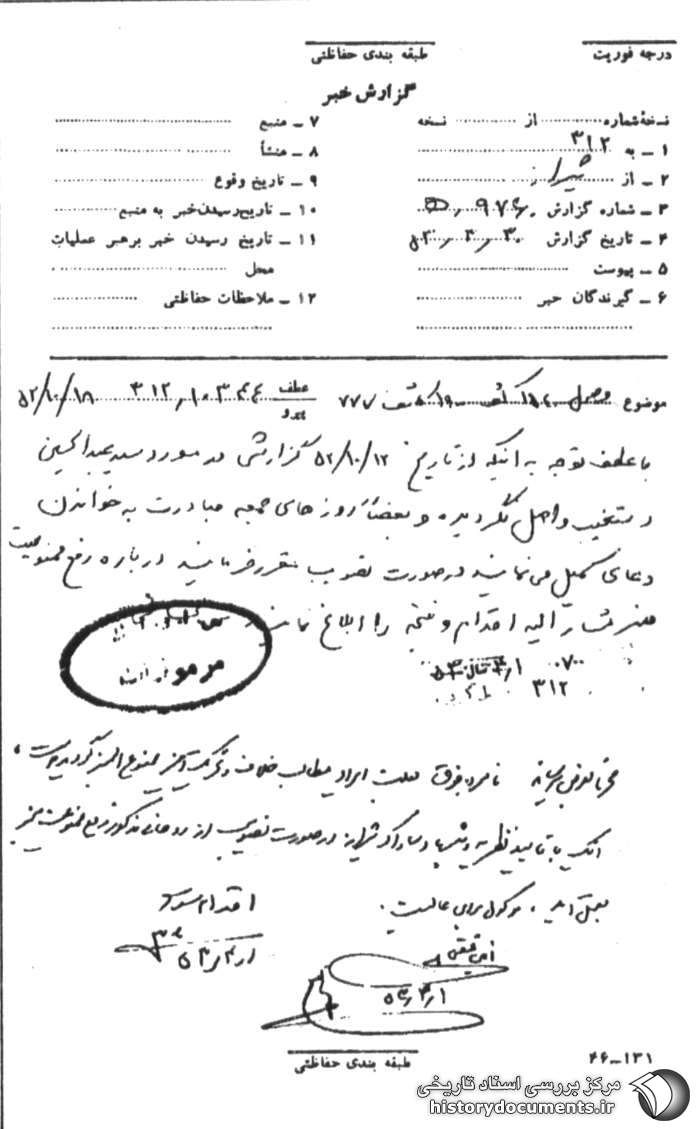 درجه فوریت
طبقه بندی حفاظتی
گزارش خبر
نسخهٔ شماره از نسخه
۱ ـ به ۳۱۲
۲ ـ از شیراز
۳ ـ شماره گزارش ۹۷۶۰
۴ ـ تاریخ گزارش ۵۳٫۳٫۳۰
۵ ـ پیوست
۶ ـ گیرندگان خبر
۷ ـ منبع
۸ ـ منشأ
۹ ـ تاریخ وقوع
۱۰ ـ تاریخ رسیدن خبر به منبع
۱۱ ـ تاریخ رسیدن خبر به رهبر عملیات
محل
۱۲ ـ ملاحظات حفاظتی
موضوع
عطف
پیرو
۳۱۲٫۱۰۳۴۴ ۵۲/۱۰/۱۸
با عطف توجه به اینکه از تاریخ ۵۲/۱۰/۱۲ گزارشی در مورد سید عبدالحسین
دستغیب واصل نگردیده و بعضاً روزهای جمعه مبادرت به خواندن
دعای کمیل می‌نمایند در صورت تصویب مقرر فرمایند درباره رفع ممنوعیت
منبر مشارالیه اقدام و نتیجه را ابلاغ نمایند
مرموز
۰۷۰۰
۳۱۲
محترما بعرض میرساند نامبرده فوق بعلت ایراد مطالب خلاف و تحریک آمیز ممنوع المنبر گردیده است،
اینک با تائید نظریه ساواک شیراز در صورت تصویب از روحانی مذکور رفع ممنوعیت منبر
بعمل آید. موکول برای عالیست.
اقدام شود
۵۳٫۴٫۱
۵۳٫۴٫۱
طبقه بندی حفاظتی
۴۶ـ۱۳۱
مرکز بررسی اسناد تاریخی
historydocuments.ir